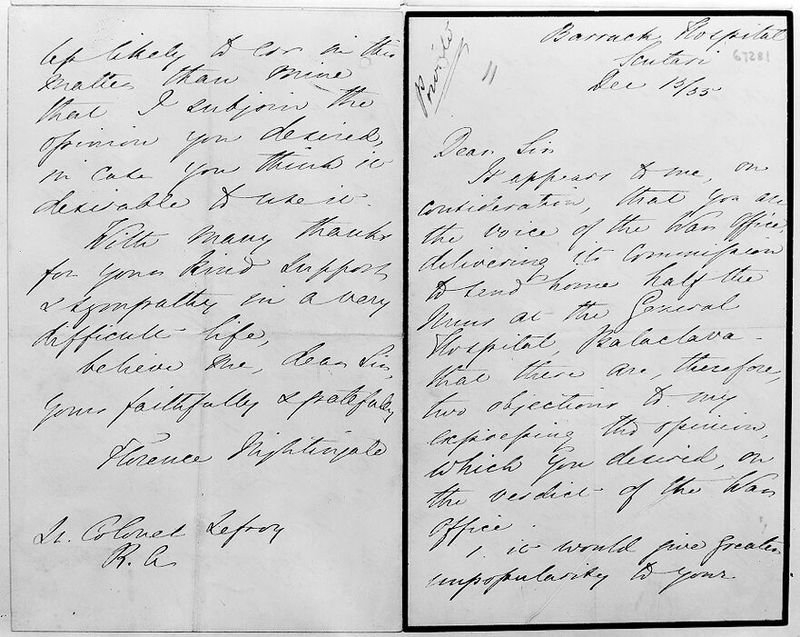 Private
Barrack Hospital
Scutari
67281
Dec 15/55
Dear Sir
It appears to me, on
consideration, that you are
the voice of the War Office
delivering its Commission
to send home half the
Nuns at the General
Hospital, Balaclava -
that there are, therefore,
two objections to my
expressing the opinion,
which you desired, on
the verdict of the War
Office.
1. it would give greater
unpopularity to your
less likely to err in this
matter than mine
that I subjoin the
opinion you desired,
in case you think it
desirable to use it.
With many thanks
for your kind support
& sympathy in a very
difficult life,
believe me, dear Sir,
yours faithfully & gratefully
Florence Nightingale
Lt. Colonel Lefroy
R.A.